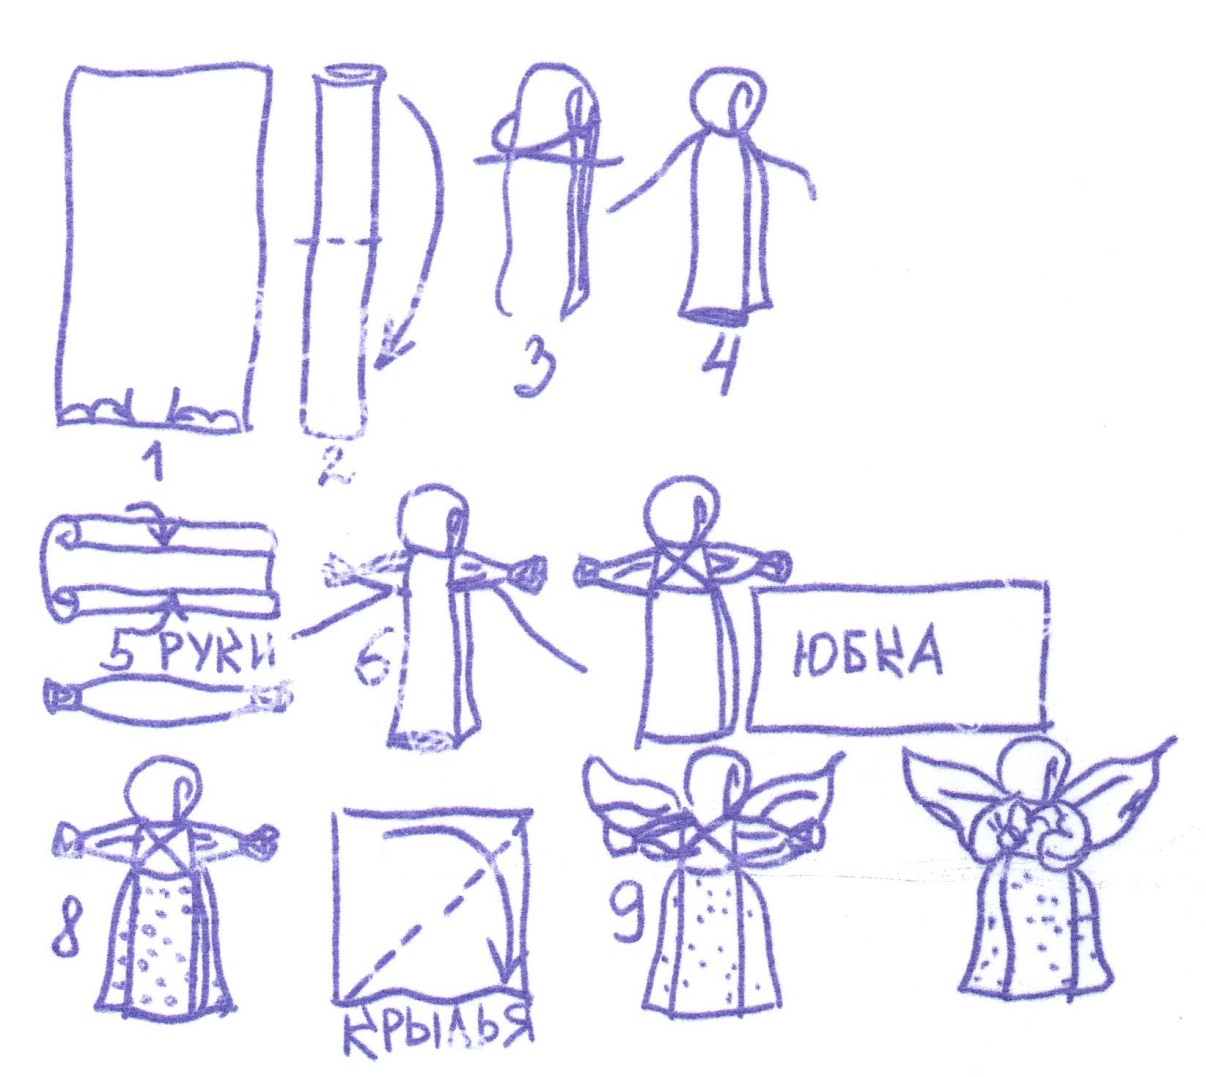 1
2
3
4
5 РУКИ
6
ЮБКА
8
КРЫЛЬЯ
9